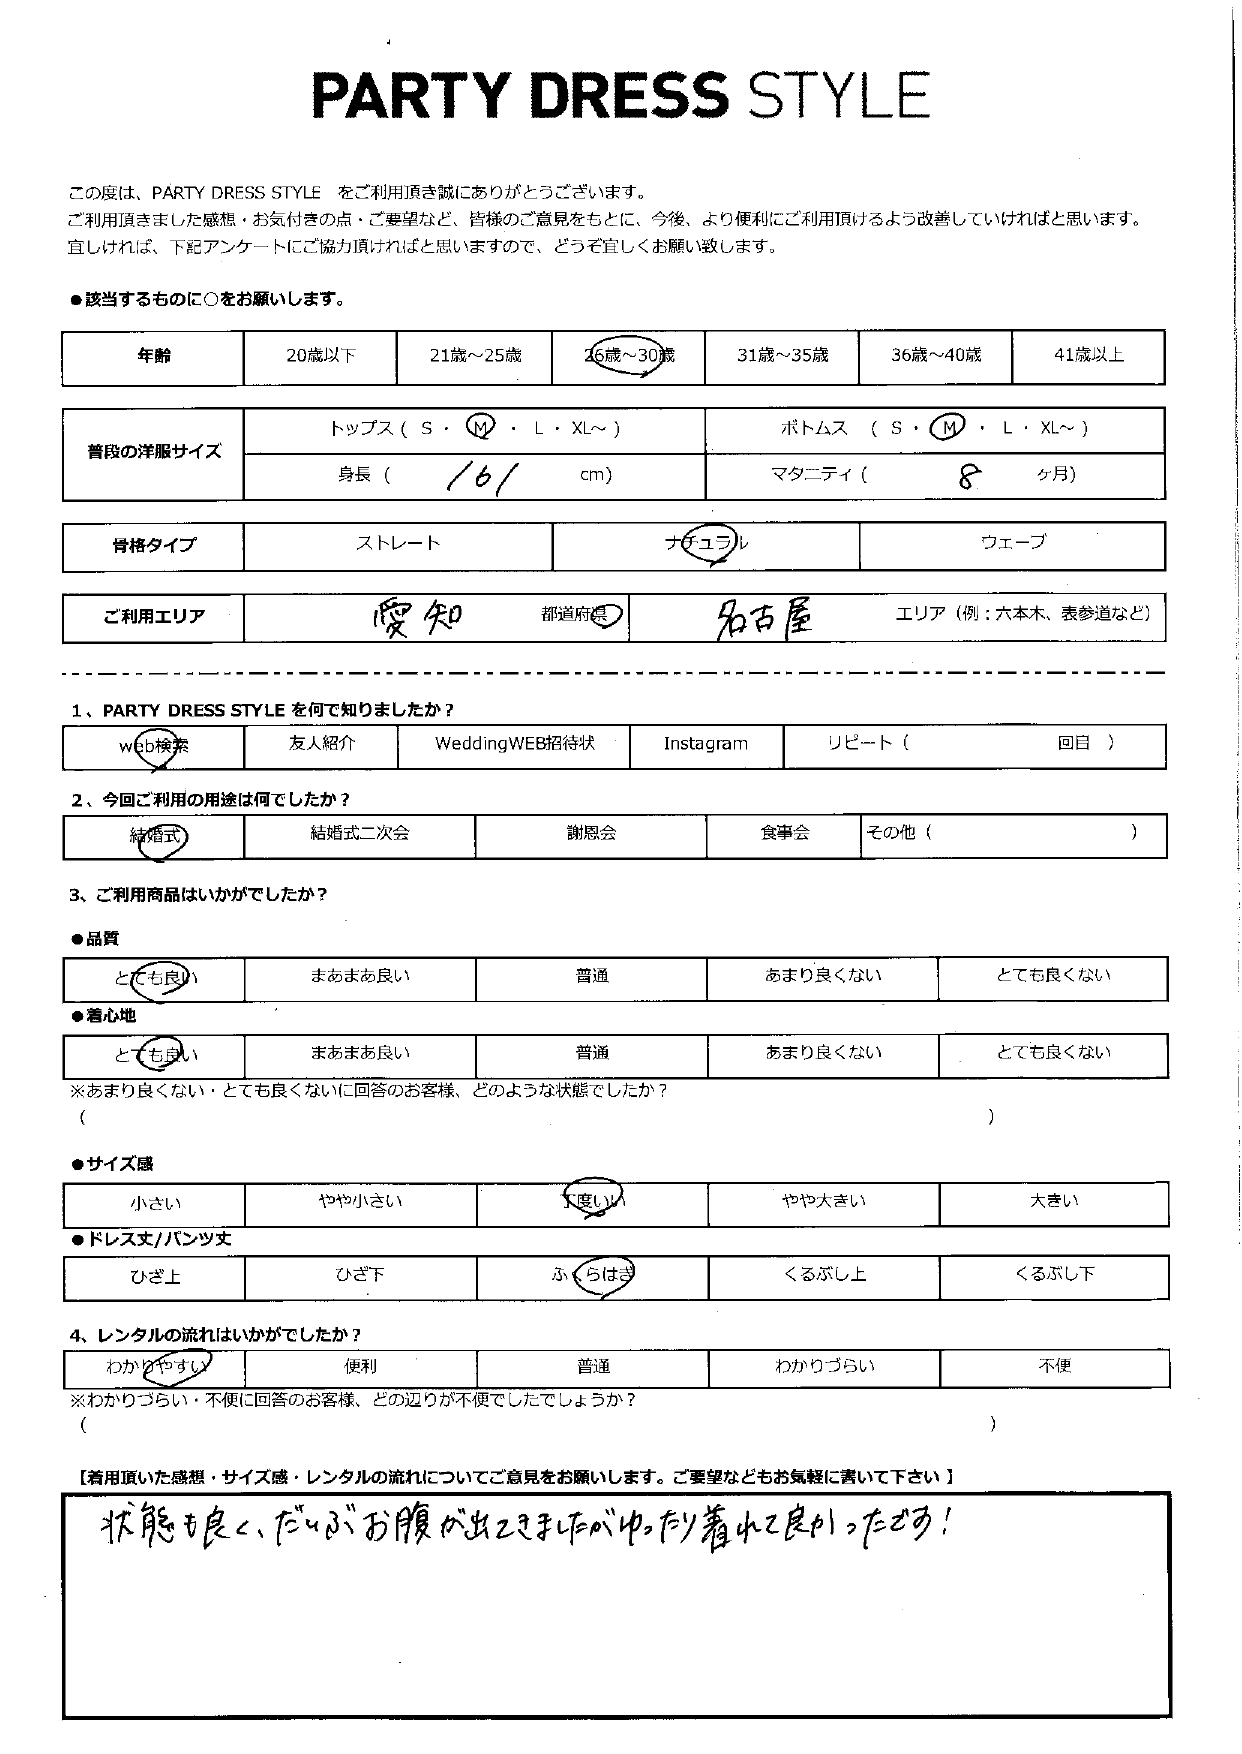 PARTY DRESS STYLE
この度は、PARTY DRESS STYLE をご利用頂き誠にありがとうございます。
ご利用頂きました感想・お気付きの点・ご要望など、皆様のご意見をもとに、今後、より便利にご利用頂けるよう改善していければと思います。
宜しければ、下記アンケートにご協力頂ければと思いますので、どうぞ宜しくお願い致します。
●該当するものに○をお願いします。
年齢 20歳以下 21歳～25歳 26歳～30歳 31歳～35歳 36歳～40歳 41歳以上
普段の洋服サイズ
トップス ( S ・ M ・ L ・ XL～ ) ボトムス ( S ・ M ・ L ・ XL～ )
身長 ( 161 cm) マタニティ ( 8 ヶ月)
骨格タイプ ストレート ナチュラル ウェーブ
ご利用エリア 愛知 都道府県 名古屋 エリア (例：六本木、表参道など)
1、PARTY DRESS STYLE を何で知りましたか？
web検索 友人紹介 WeddingWEB招待状 Instagram リピート ( 回目 )
2、今回ご利用の用途は何でしたか？
結婚式 結婚式二次会 謝恩会 食事会 その他 ( )
3、ご利用商品はいかがでしたか？
●品質
とても良い まあまあ良い 普通 あまり良くない とても良くない
●着心地
とても良い まあまあ良い 普通 あまり良くない とても良くない
※あまり良くない・とても良くないに回答のお客様、どのような状態でしたか？
( )
●サイズ感
小さい やや小さい 丁度いい やや大きい 大きい
●ドレス丈/パンツ丈
ひざ上 ひざ下 ふくらはぎ くるぶし上 くるぶし下
4、レンタルの流れはいかがでしたか？
わかりやすい 便利 普通 わかりづらい 不便
※わかりづらい・不便に回答のお客様、どの辺りが不便でしたでしょうか？
( )
【着用頂いた感想・サイズ感・レンタルの流れについてご意見をお願いします。ご要望などもお気軽に書いて下さい】
状態も良く、だいぶお腹が出てきましたがゆったり着れて良かったです！